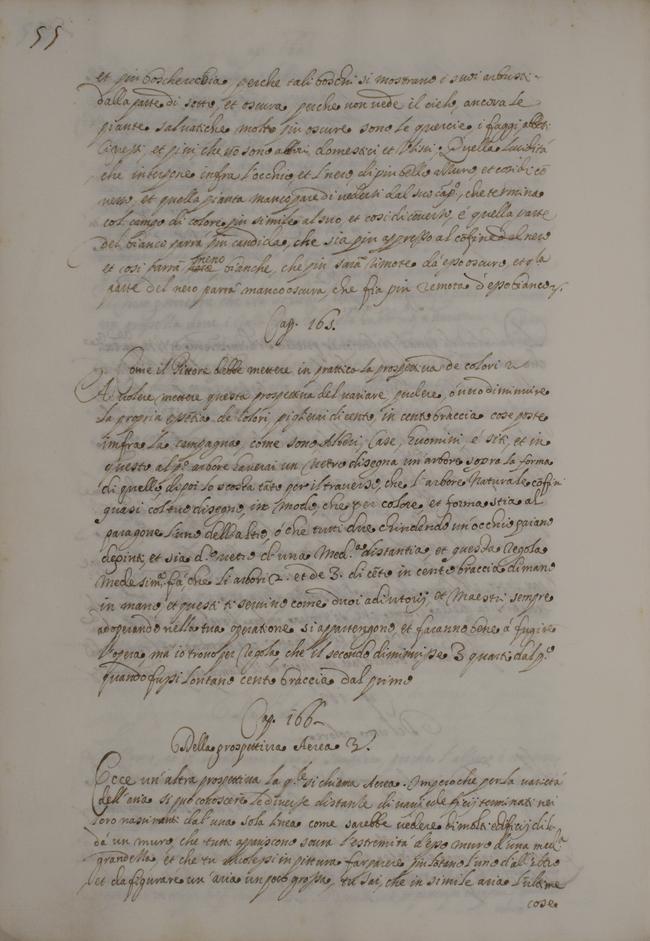 55
et piu boscherecchia perche tali boschi si mostrano i suoi arbusti
dalla parte di sotto, et oscura perche non vede il cielo, ancora le
piante salvatiche molto piu oscure sono le quercie, i faggi abeti
Cipressi, et pini che nō sono alberi domestici et Quella Lucidità
che interpone infra l'occhio, et l'nero di piu bello Azuro, et cosi di cō
verso, et quella pianta manco pare di vedersi dal suo cāpo, che termina
col campo di colore piu simile al suo, et cosi di converso, è quella parte
del bianco parrà piu candida, che sia piu appresso al cōfine del nero
et cosi parrā meno bianche, che piu saran Remote da esso oscuro, et q̄lla
parte del nero parrà manco oscura, che fia piu remota d'esso bianco
Cap. 165.
Come il Pittore debbe mettere in prattica la prospettiva de colori 2
A volere mettere questa prospettiva del variare perdere, ò vero diminuire
la propria essētia de colori, piglierai di cento in cento braccia cose poste
infra la campagna, come sono Alberi, Case, huomini è siti, et in
questo al p.o arbore haverai un Vetro disegna un'arbore sopra la forma
di quello dipoi lo scosta tāto per il traverso, che l'arbore Naturale cōfini
quasi col tuo disegno, in modo, che per colore, et forma stia al
paragone l'uno dell'altro, ò che tutti due chiudendo un'occhio paiano
depinti, et sia d.o vetro di una Med.a distantia, et questa Regola
Medesim.a fa, che li arbori 2. et de 3. di cēto in cento braccia di mano
in mano, et questi ti servino come duoi adiutorij, et Maestri sempre
adoperando nella tua operatione si appartengono, et faranno bene à fugire
l'opera, ma io trovo per regola, che il secondo diminuisse 3 quarti dal p.o
quando fussi lontano cento braccia dal primo
Cap. 166
Della prospettiva Aerea 3.a
Ecce un'altra prospettiva la q.le si chiama Aerea. Imperoche per la varietà
dell'aria si può conoscere le diverse distantie di varij edificij terminati nei
loro nascimenti dal'una sola linea come sarebbe vedere di molti edificij di là
da un muro, che tutti appariscono sovra l'estremità d'esso muro d'una med.a
grandezza, et che tu volessi in pittura far parere piu lontano l'uno dell'altro
et da figurare un'aria un poco grossa, tu sai, che in simile aria l'ultime
cose